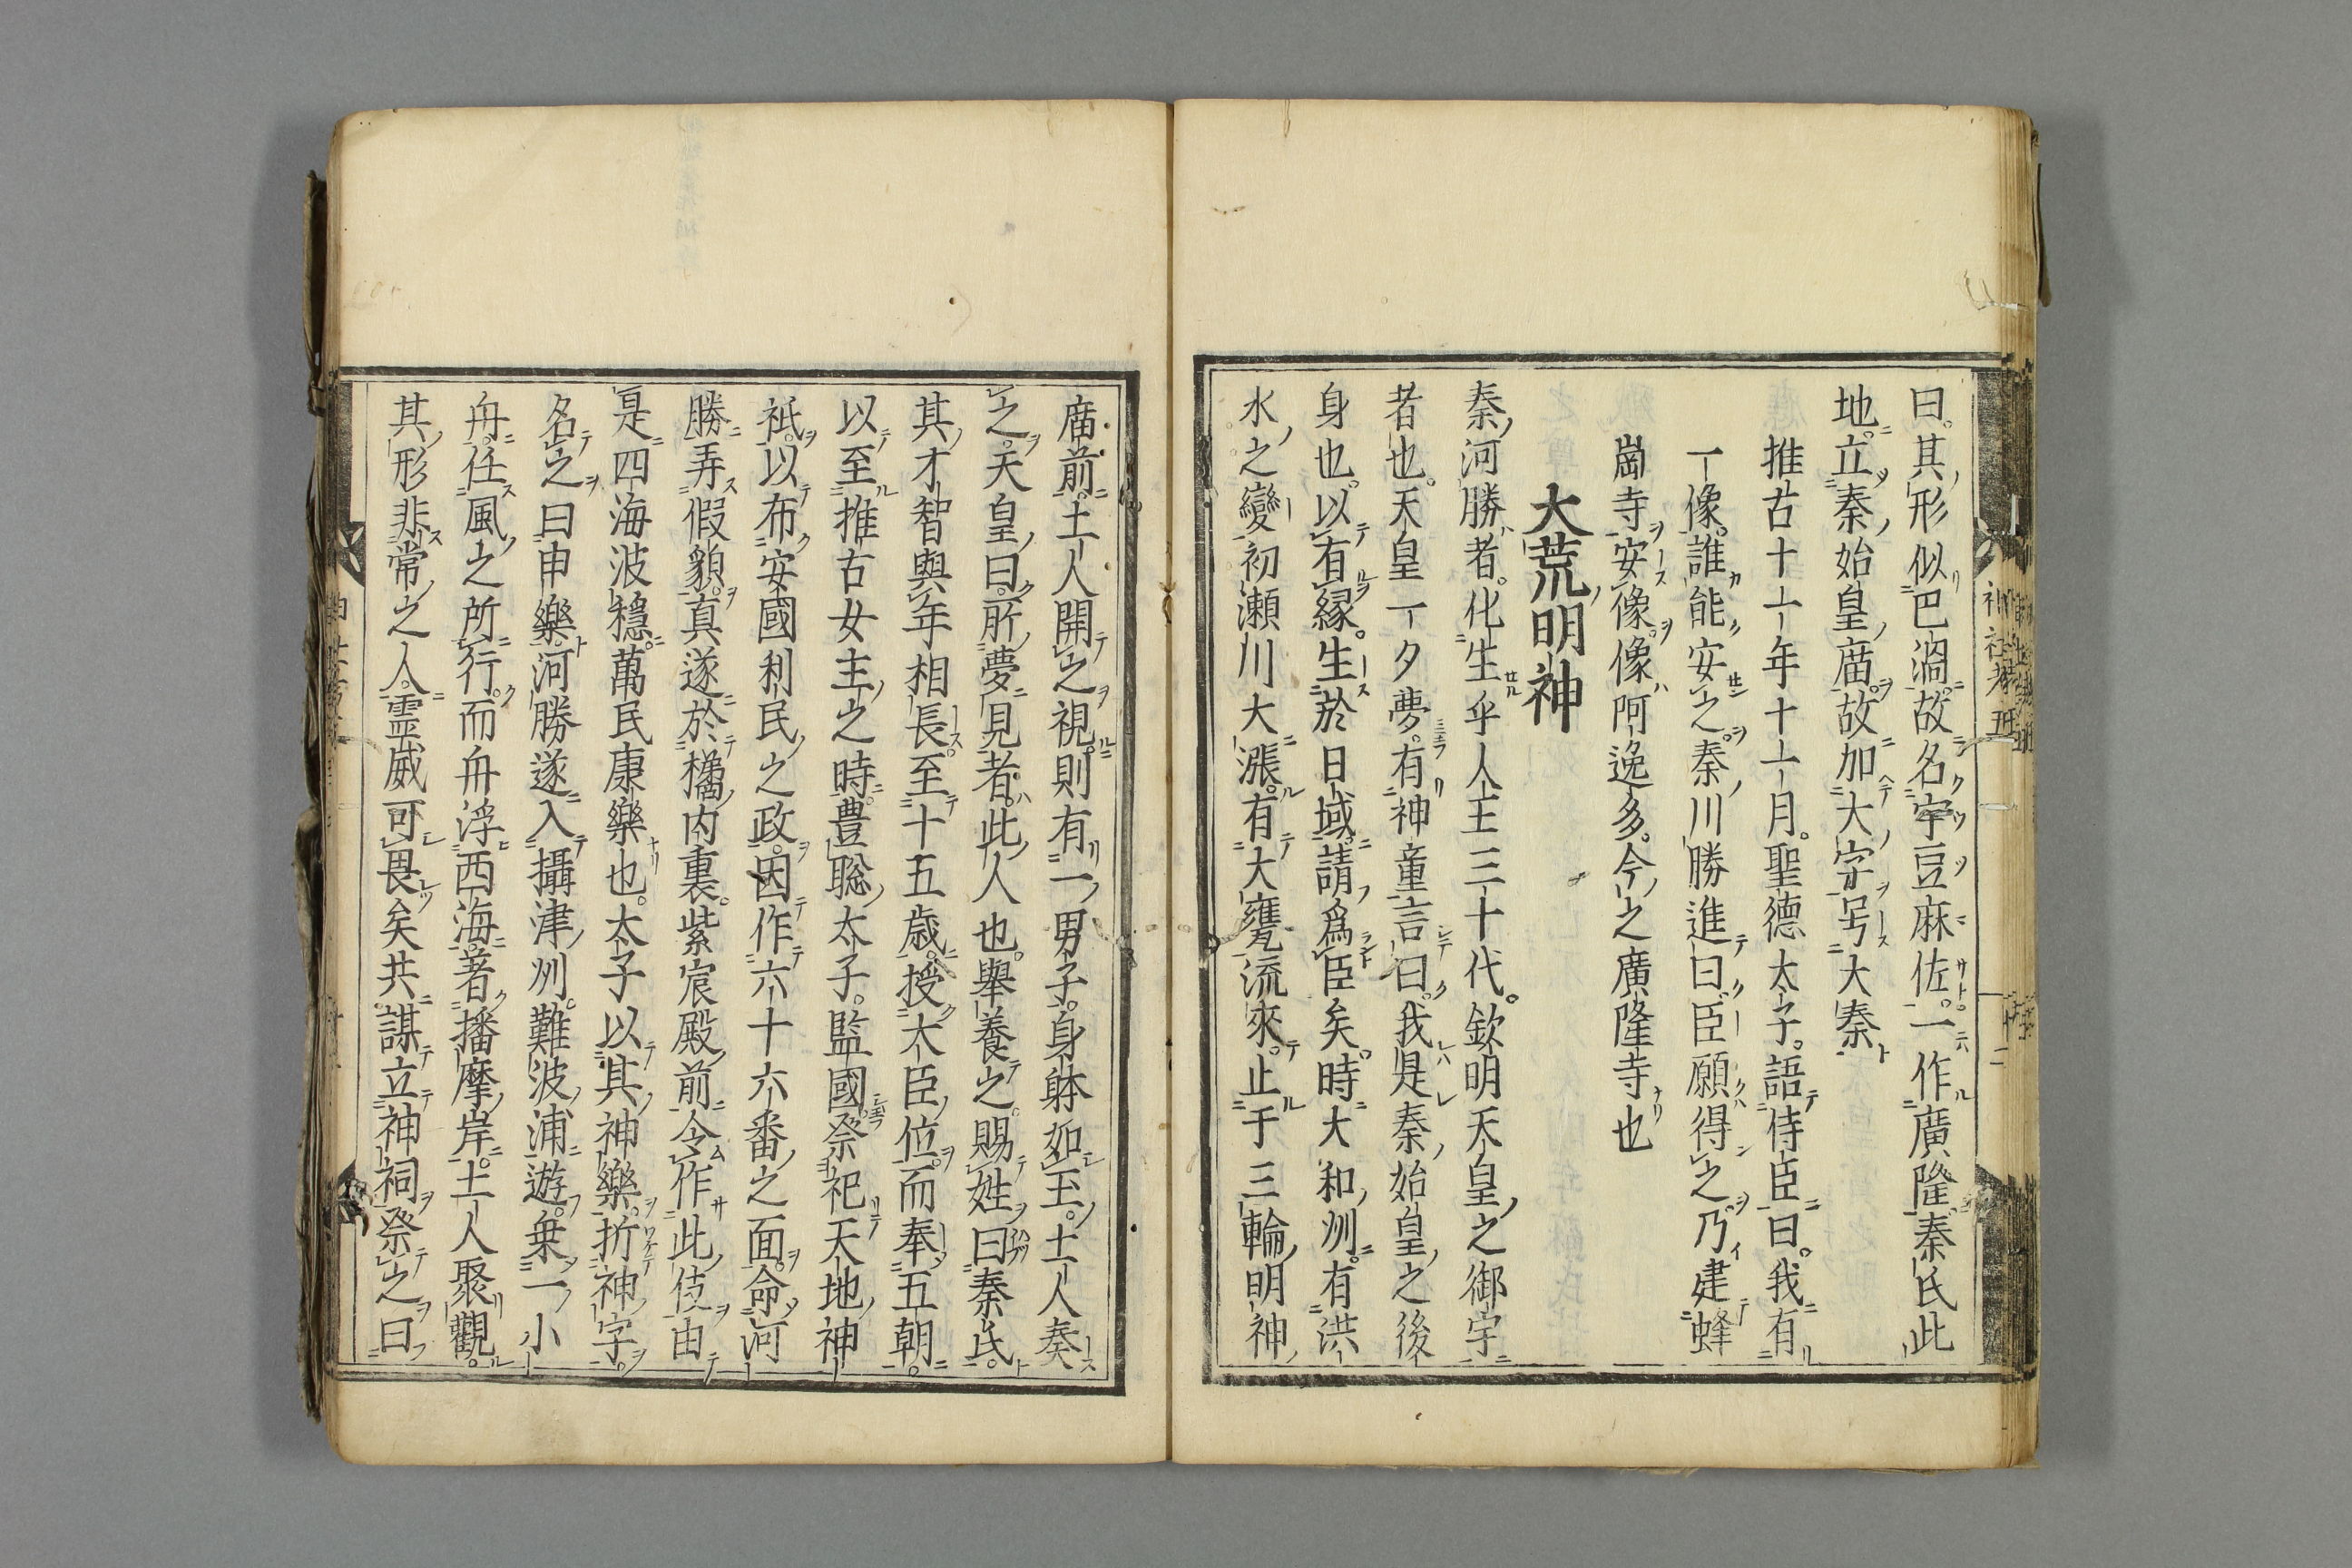 曰其形似巴渦故名宇豆麻佐一作廣隆秦氏此
地立秦始皇庿故加大字号大秦
推古十一年十一月聖德太子語侍臣曰我有
一像誰能安之秦川勝進曰臣願得之乃建蜂
崗寺安像像阿逸多今之廣隆寺也
大荒明神
秦河勝者化生乎人王三十代欽明天皇之御宇
者也天皇一夕夢有神童言曰我是秦始皇之後
身也以有縁生於日域請爲臣矣時大和州有洪
水之變初瀬川大漲有大甕流來止于三輪明神
庿前土人開之視則有一男子身體如玉土人奏
之天皇曰所夢見者此人也舉養之賜姓曰秦氏
其才智與年相長至十五歳授大臣位而奉五朝
以至推古女主之時豊聡太子監國祭祀天地神
祇以布安國利民之政因作六十六番之面命河
勝弄假貌真遂於橘内裏紫宸殿前令作此伎由
是四海波穏萬民康樂也太子以其神樂折神字
名之曰申樂河勝遂入攝津州難波浦遊乗一小
舟任風之所行而舟浮西海著播摩岸土人聚觀
其形非常之人霊威可畏矣共謀立神祠祭之曰